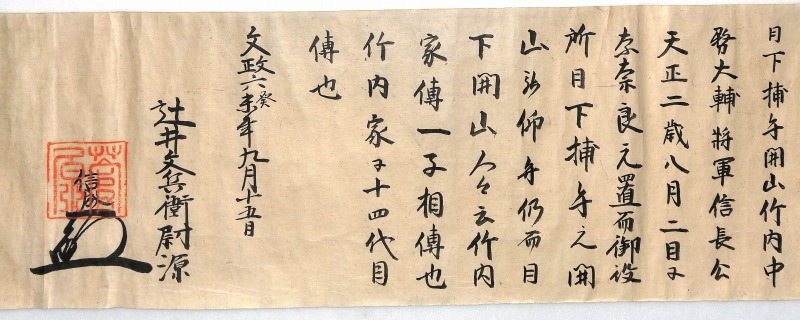 日下捕手開山竹内中
務大輔将軍信長公
天正二歳八月二日ヨ
奈良元置而御設
所日下捕手元開
山号仰舟仍而日
下開山人々云竹内
家傳一子相傳也
竹内家ヨ十四代目
傳也
文政六癸未年九月十五日
辻井文兵衛尉源
信